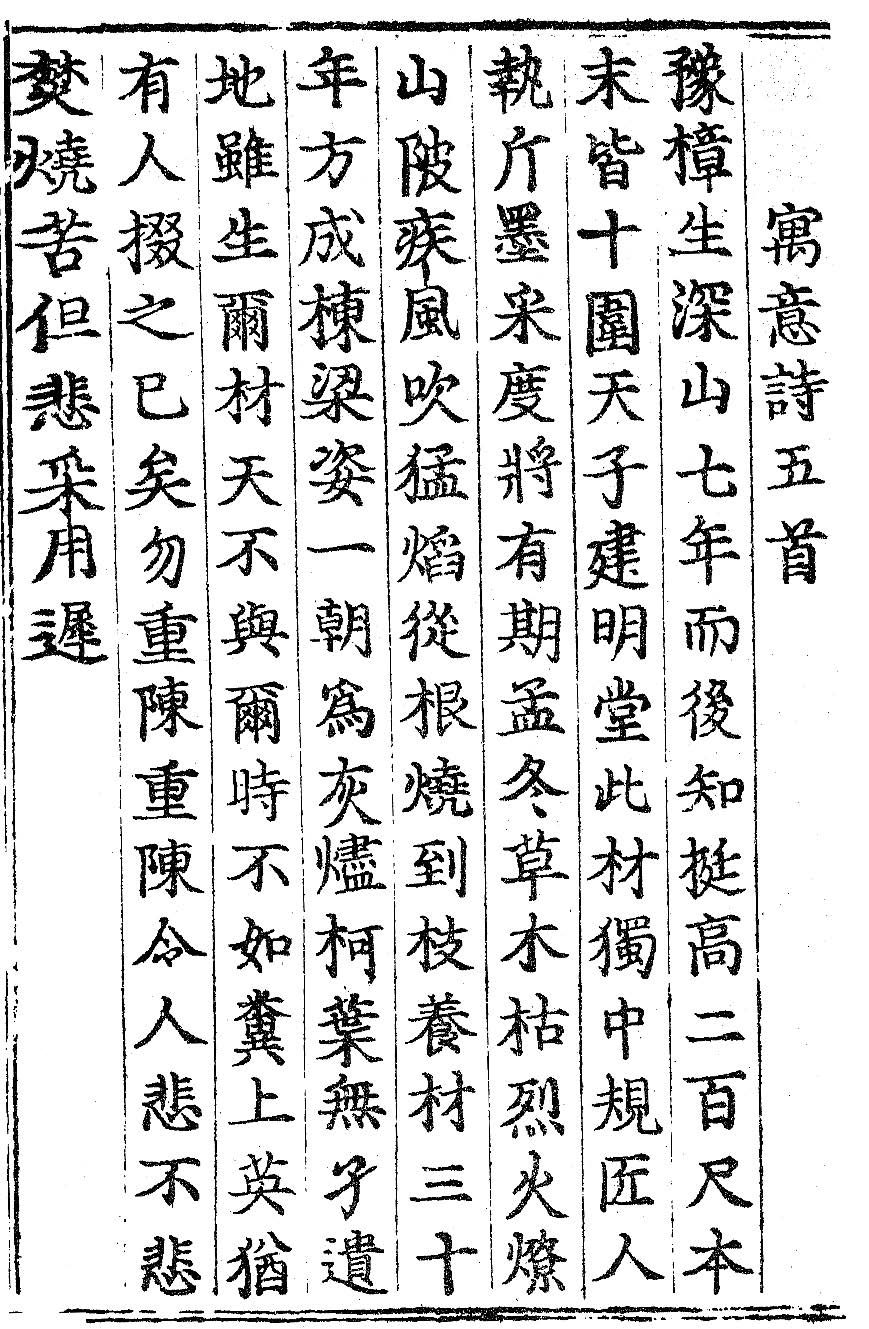 寓意詩五首
豫樟生深山七年而後知挺高二百尺本
末皆十圍天子建明堂此材獨中規匠人
執斤墨采度將有期孟冬草木枯烈火燎
山陂疾風吹猛焰從根燒到枝養材三十
年方成棟梁姿一朝爲灰燼柯葉無孑遺
地雖生爾材天不與爾時不如糞上英猶
有人掇之已矣勿重陳重陳令人悲不悲
焚燒苦但悲采用遲